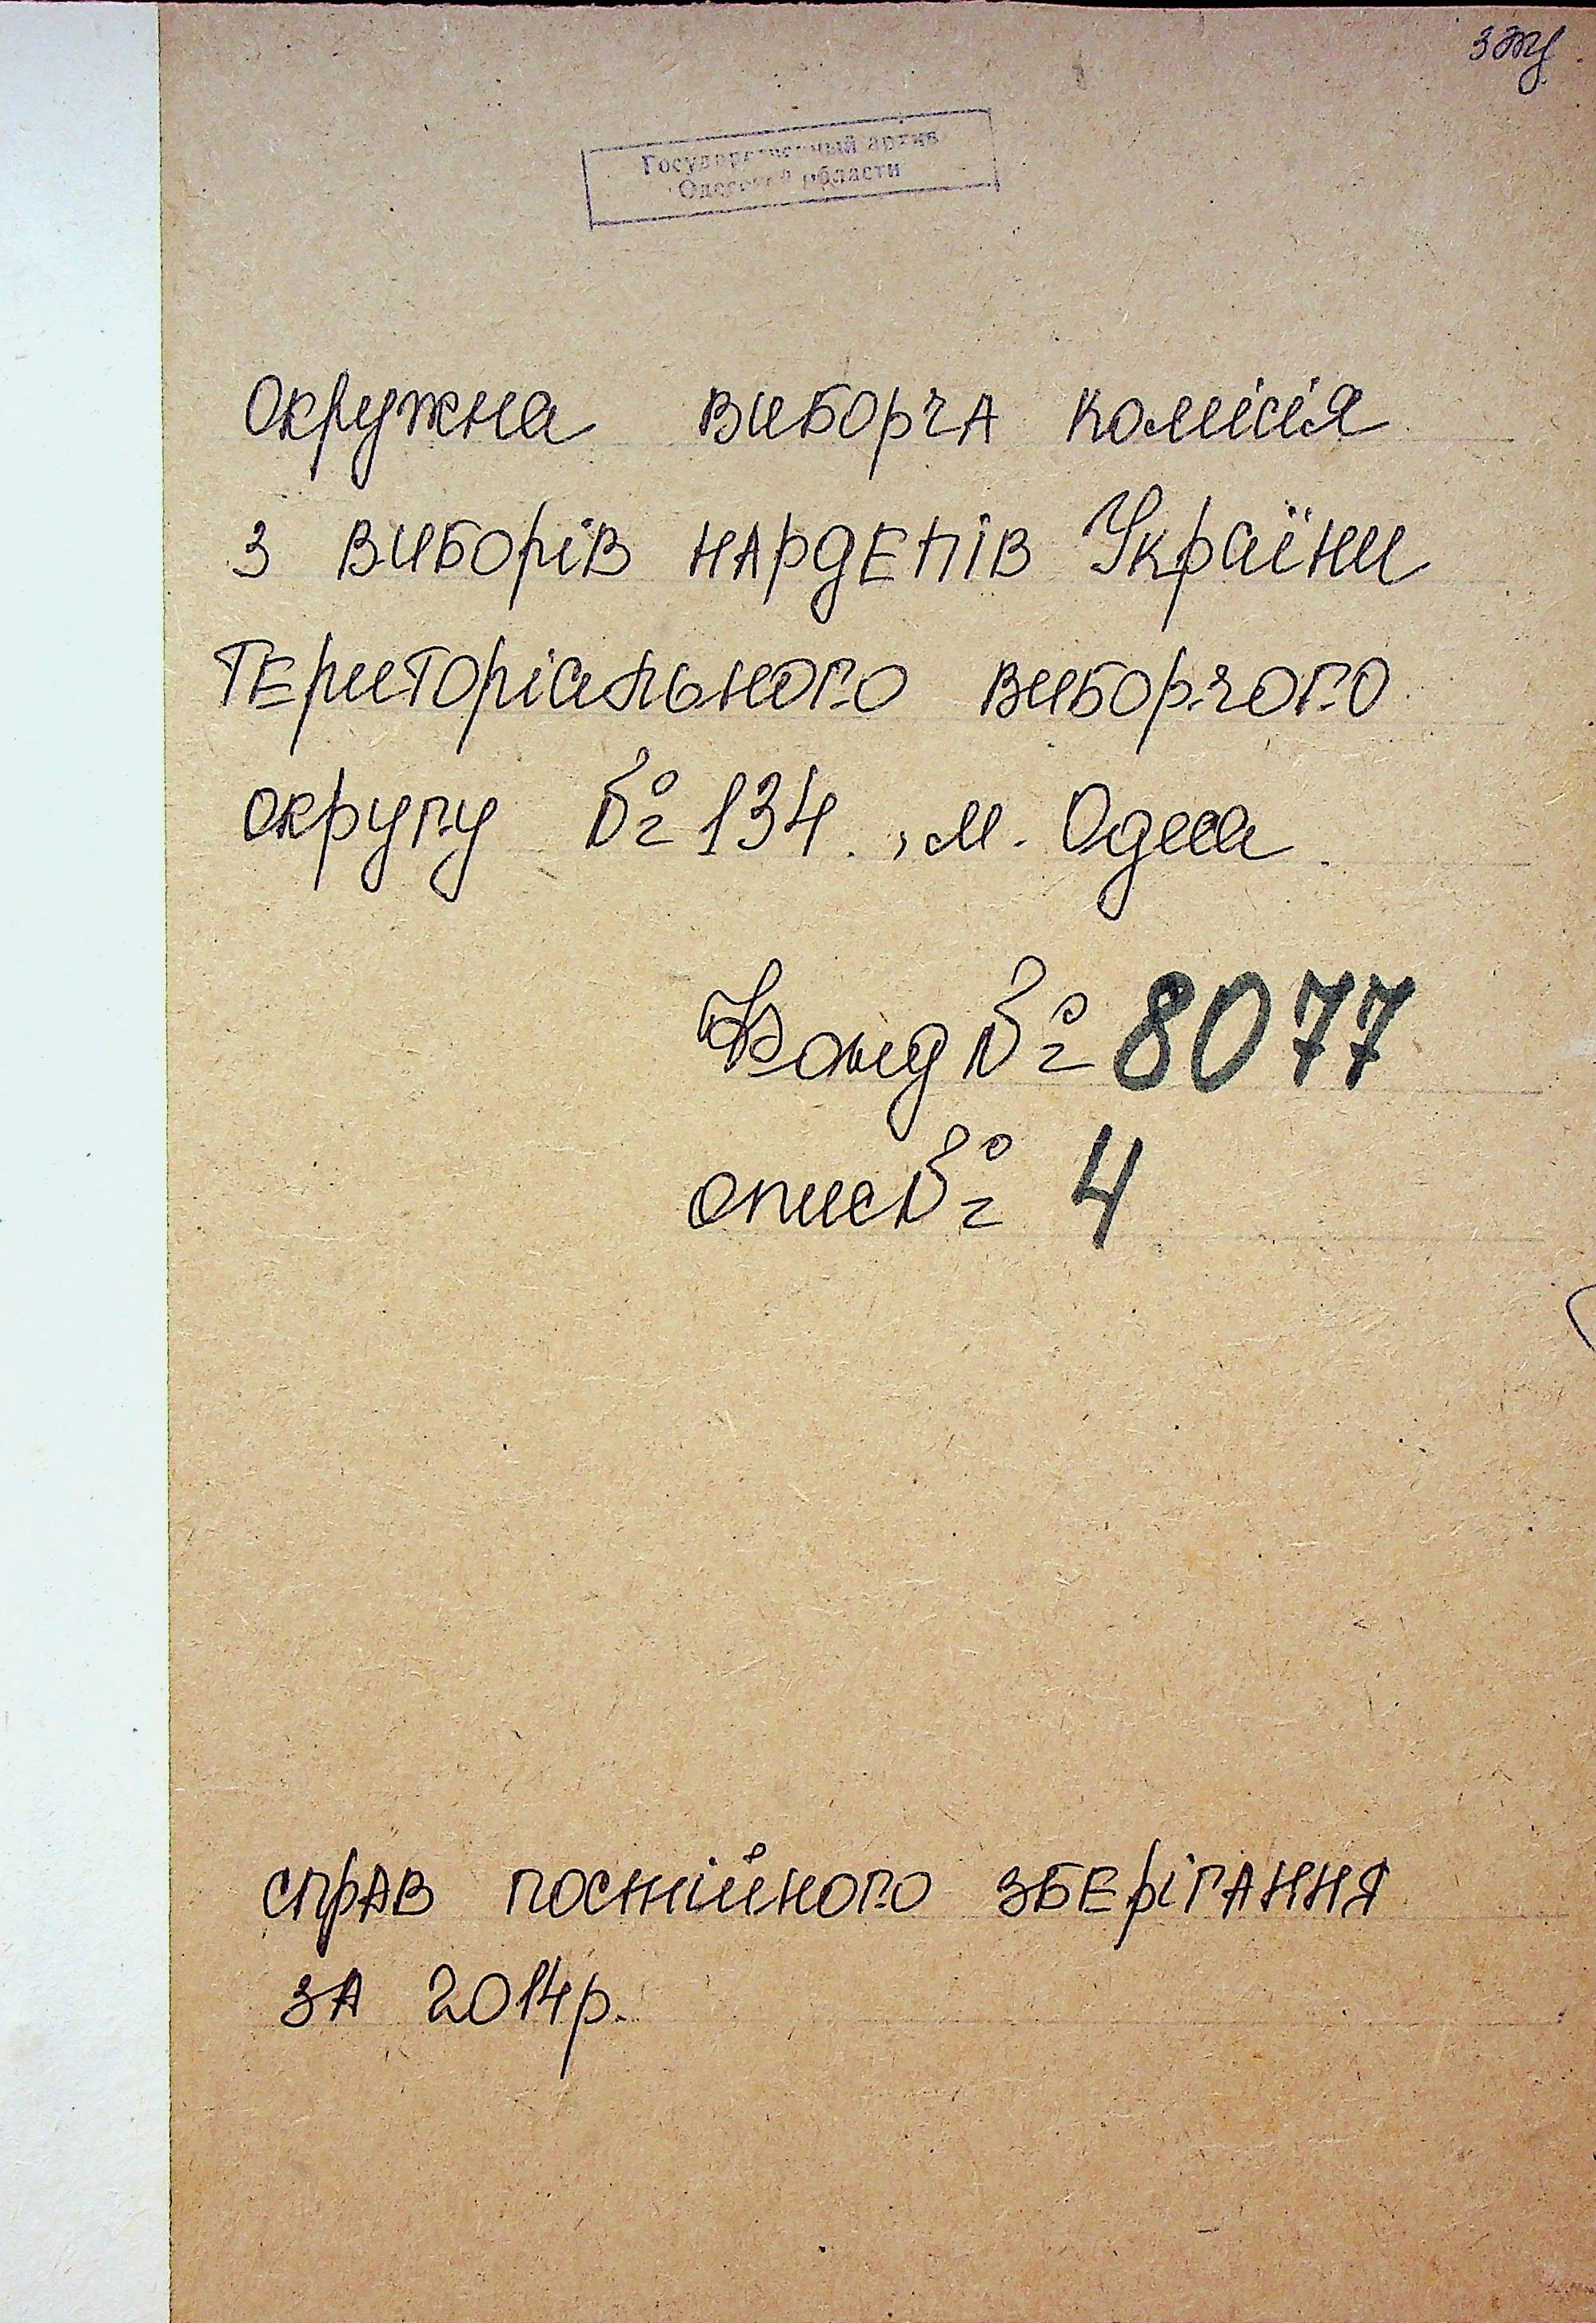 Государственный архив
Одесской области
Окружна виборча комісія
з виборів нардепів України
територіального виборчого
округу № 134., м. Одеса
Фонд № 8077
опис № 4
справ постійного зберігання
за 2014р.